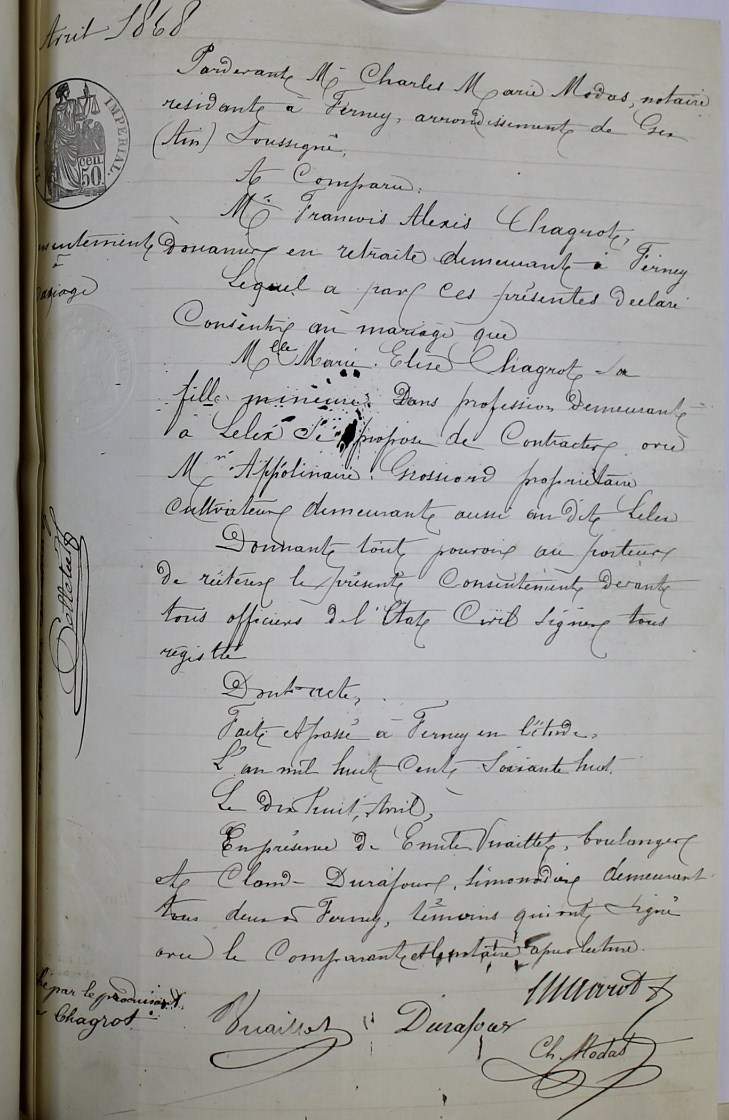 Avril 1868
Pardevant Me Charles Marie Modas, notaire
residant à Ferney, arrondissement de Gex
(Ain) Soussigné,
IMPERIAL.
50 cen
A Comparu:
Mr Francois Alexis Chagrot,
Douanier en retraite demeurant à Ferney
Lequel a par ces présentes declaré
Consentir au mariage que
Mlle Marie Elise Chagrot sa
fille mineure Sans profession demeurant
à Lelex Se propose de Contracter avec
Mr Appolinaire Grossiord propriétaire
Cultivateur demeurant aussi au dit Lelex
Donnant tout pouvoir au porteur
de réitérer le présent Consentement devant
tous officiers de l'Etat Civil Signer tous
registre
Dont acte,
Fait et passé à Ferney en l'étude,
L'an mil huit Cent Soixante huit
Le dix huit, Avril,
En présence de Emile Vuaillet, boulanger
et Claude Durafour, limonadier demeurant
tous deux à Ferney, témoins qui ont Signé
avec le Comparant et le notaire après lecture.
par le produisant
Chagrot
Vuaillet Durafour
Ch. Modas